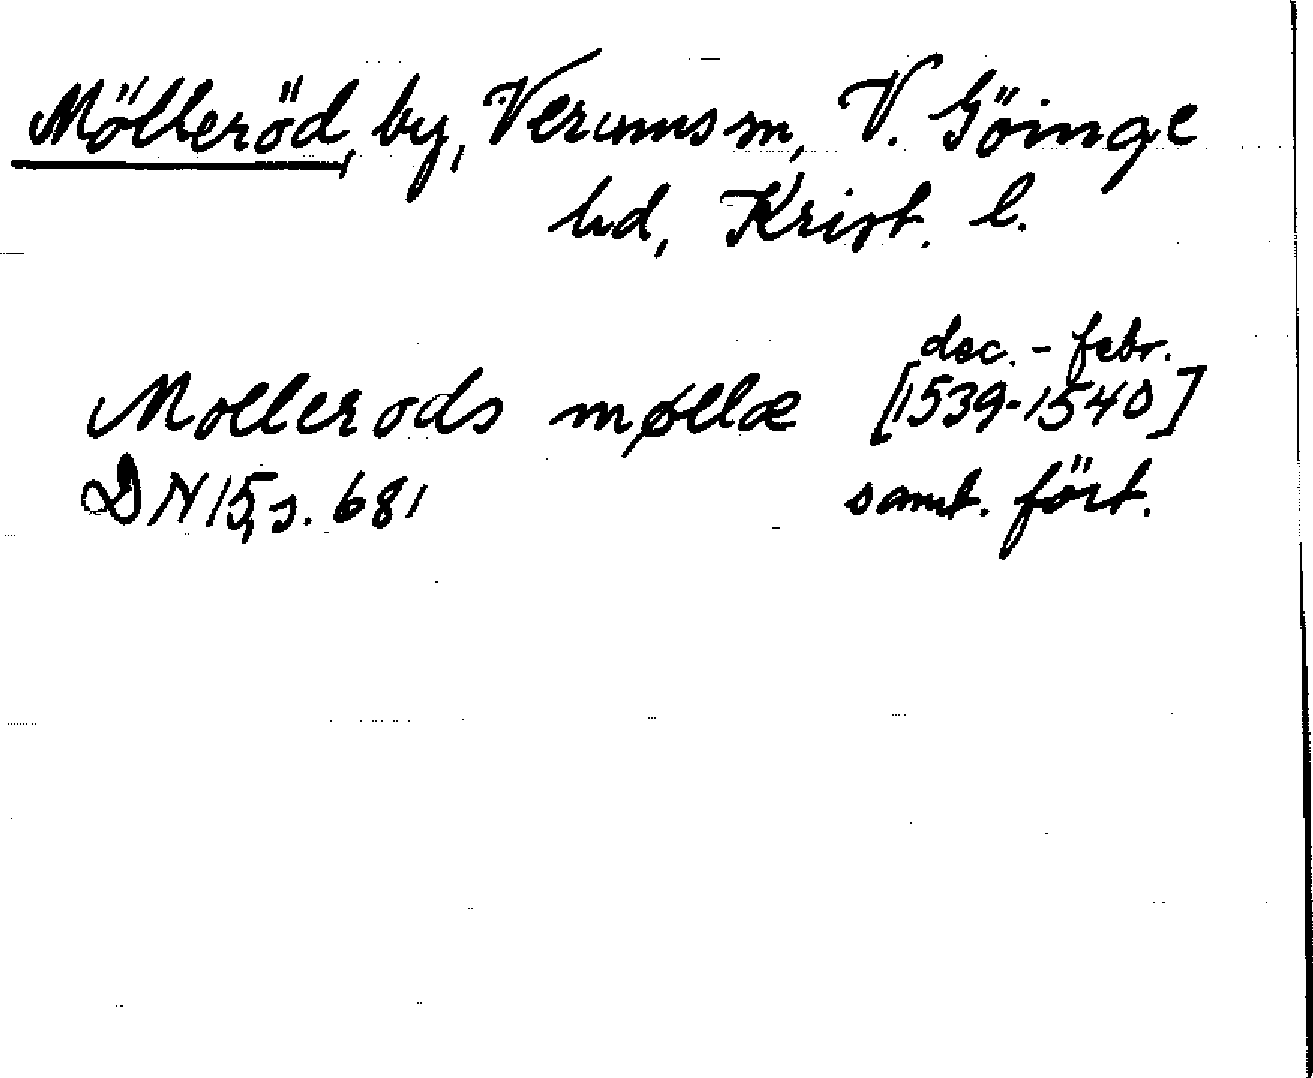 Mölleröd, by, Verums sn, V. Göinge
hd, Krist. l.
dec. - febr.
Mollerods møllæ [1539-1540]
DN 15, s. 681 samt. fört.